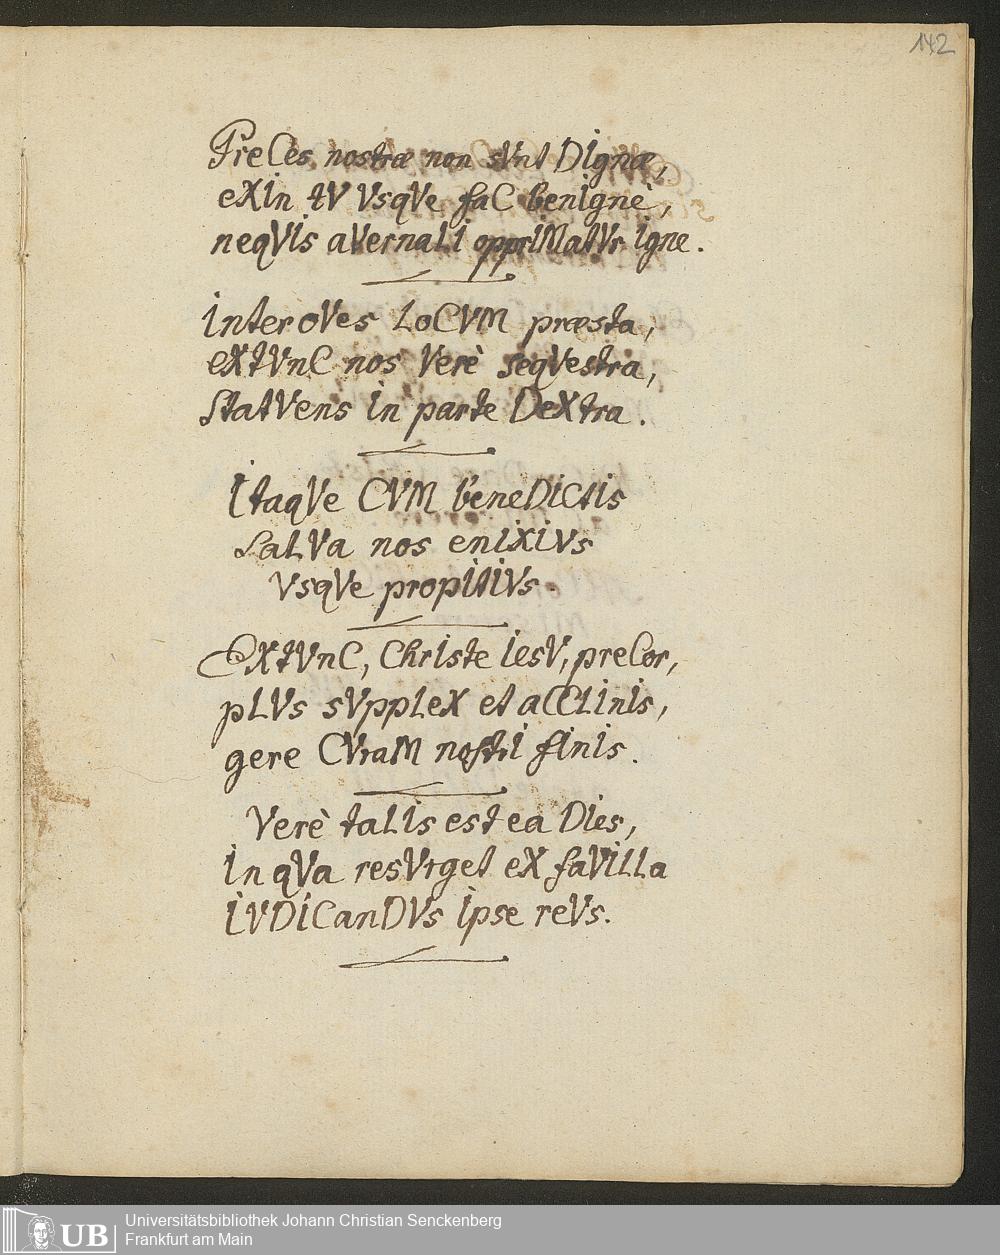 142
PreCes nostræ non sVnt DIgnæ,
eXIn tV VsqVe faC benIgnè,
neqVIs aVernaLI opprIMatVr Igne.
Inter oVes LoCVM præsta,
eXtVnC nos Verè seqVestra,
StatVens In parte DeXtra.
ItaqVe CVM beneDICtIs
saLVa nos enIXIVs
VsqVe propItIVs.
EXtVnC, ChrIste IesV, preCor,
pLVs sVppLeX et aCCLInIs,
gere CVraM nostrI fInIs.
Verè taLIs est ea DIes,
In qVa resVrget eX faVILLa
IVDICanDVs Ipse reVs.
UB
Universitätsbibliothek Johann Christian Senckenberg
Frankfurt am Main